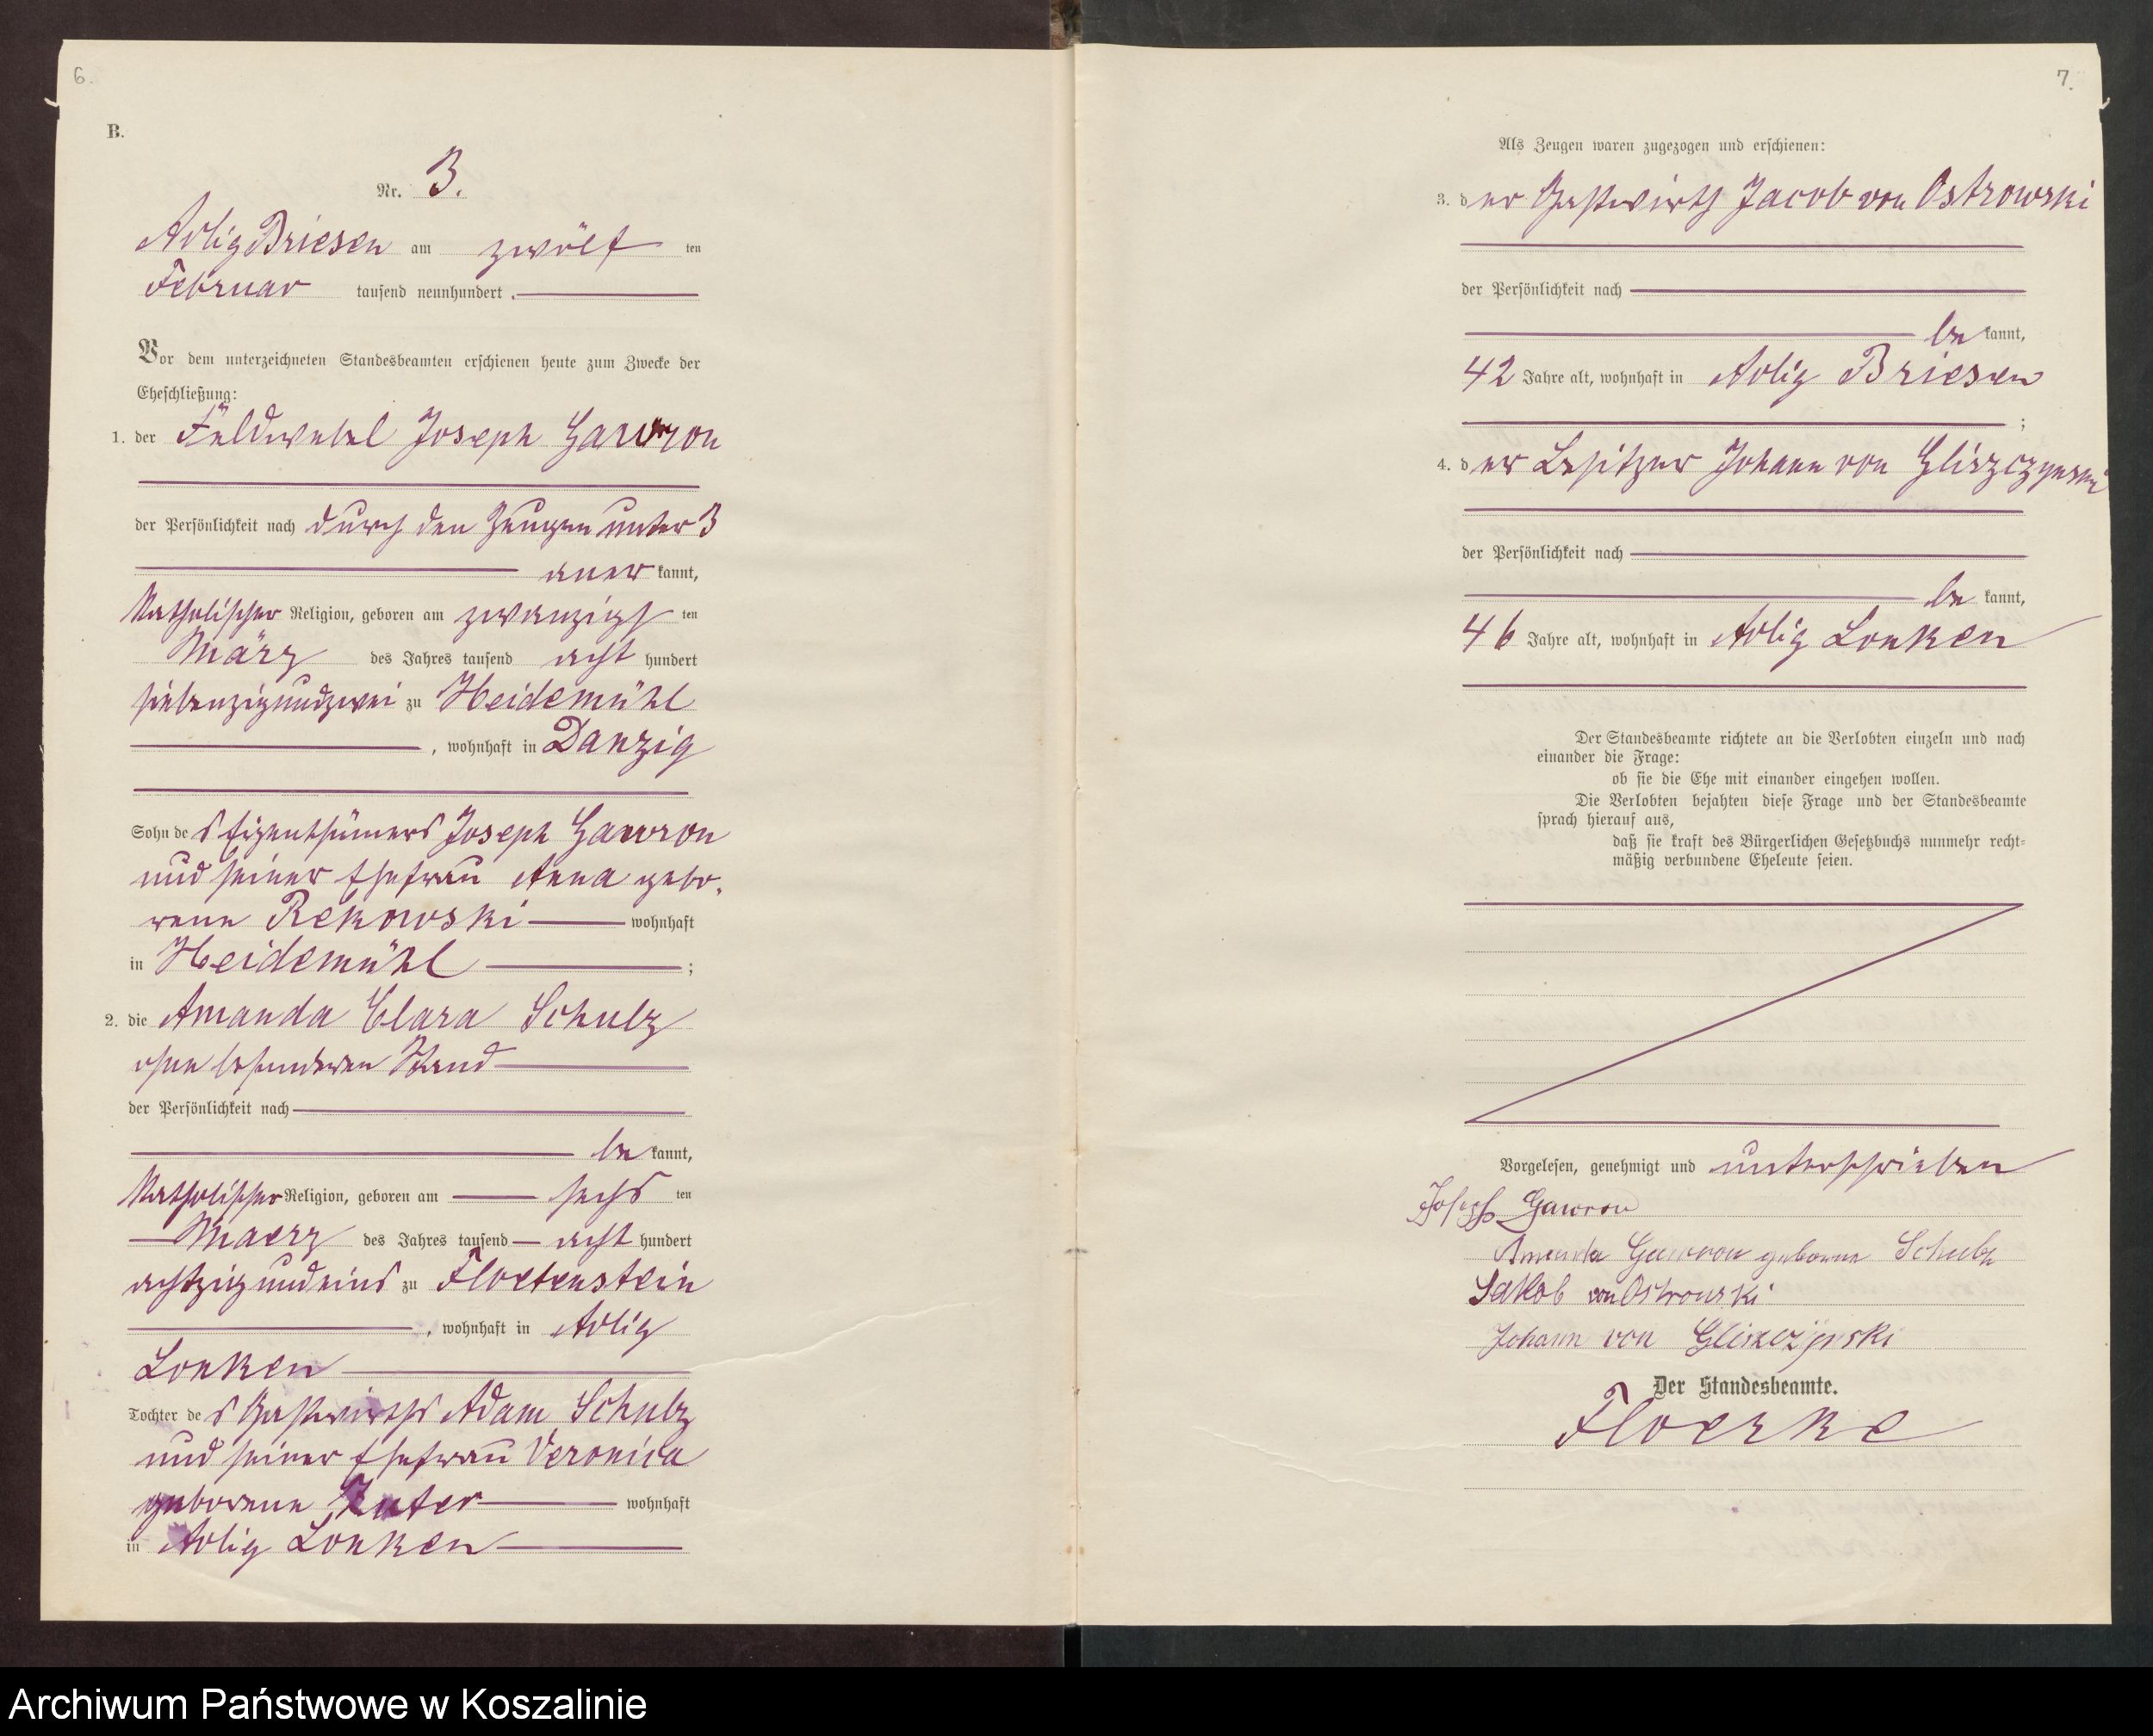 6.
B.
Nr. 3.
Adlig Briesen am zwölf ten
Februar tausend neunhundert .
Vor dem unterzeichneten Standesbeamten erschienen heute zum Zwecke der
Eheschließung:
1. der Feldwebel Joseph Gawron
der Persönlichkeit nach durch den Zeugen unter 3
aner kannt,
katholischer Religion, geboren am zwanzigst ten
März des Jahres tausend acht hundert
siebenzigundzwei zu Heidemühl
, wohnhaft in Danzig
Sohn des Eigenthümers Joseph Gawron
und seiner Ehefrau Anna gebo-
rene Rekowski wohnhaft
in Heidemühl ;
2. die Amanda Clara Schulz
ohne besonderen Stand
der Persönlichkeit nach
be kannt,
katholischer Religion, geboren am sechs ten
Maerz des Jahres tausend acht hundert
achtzigundeins zu Floetenstein
, wohnhaft in Adlig
Lonken
Tochter des Gastwirths Adam Schulz
und seiner Ehefrau Veronica
geborene wohnhaft
in Adlig Lonken
7.
Als Zeugen waren zugezogen und erschienen:
3. der Gastwirth Jacob von Ostrowski
der Persönlichkeit nach
be kannt,
42 Jahre alt, wohnhaft in Adlig Briesen
;
4. der Besitzer Johann von Gliszczynski
der Persönlichkeit nach
be kannt,
46 Jahre alt, wohnhaft in Adlig Lonken
Der Standesbeamte richtete an die Verlobten einzeln und nach
einander die Frage:
ob sie die Ehe mit einander eingehen wollen.
Die Verlobten bejahten diese Frage und der Standesbeamte
sprach hierauf aus,
daß sie kraft des Bürgerlichen Gesetzbuchs nunmehr recht-
mäßig verbundene Eheleute seien.
Vorgelesen, genehmigt und unterschrieben
Joseph Gawron
Amanda Gawron geborene Schulz
Jakob von Ostrowski
Johann von Gliszczynski
Der Standesbeamte.
Floerke
Archiwum Państwowe w Koszalinie